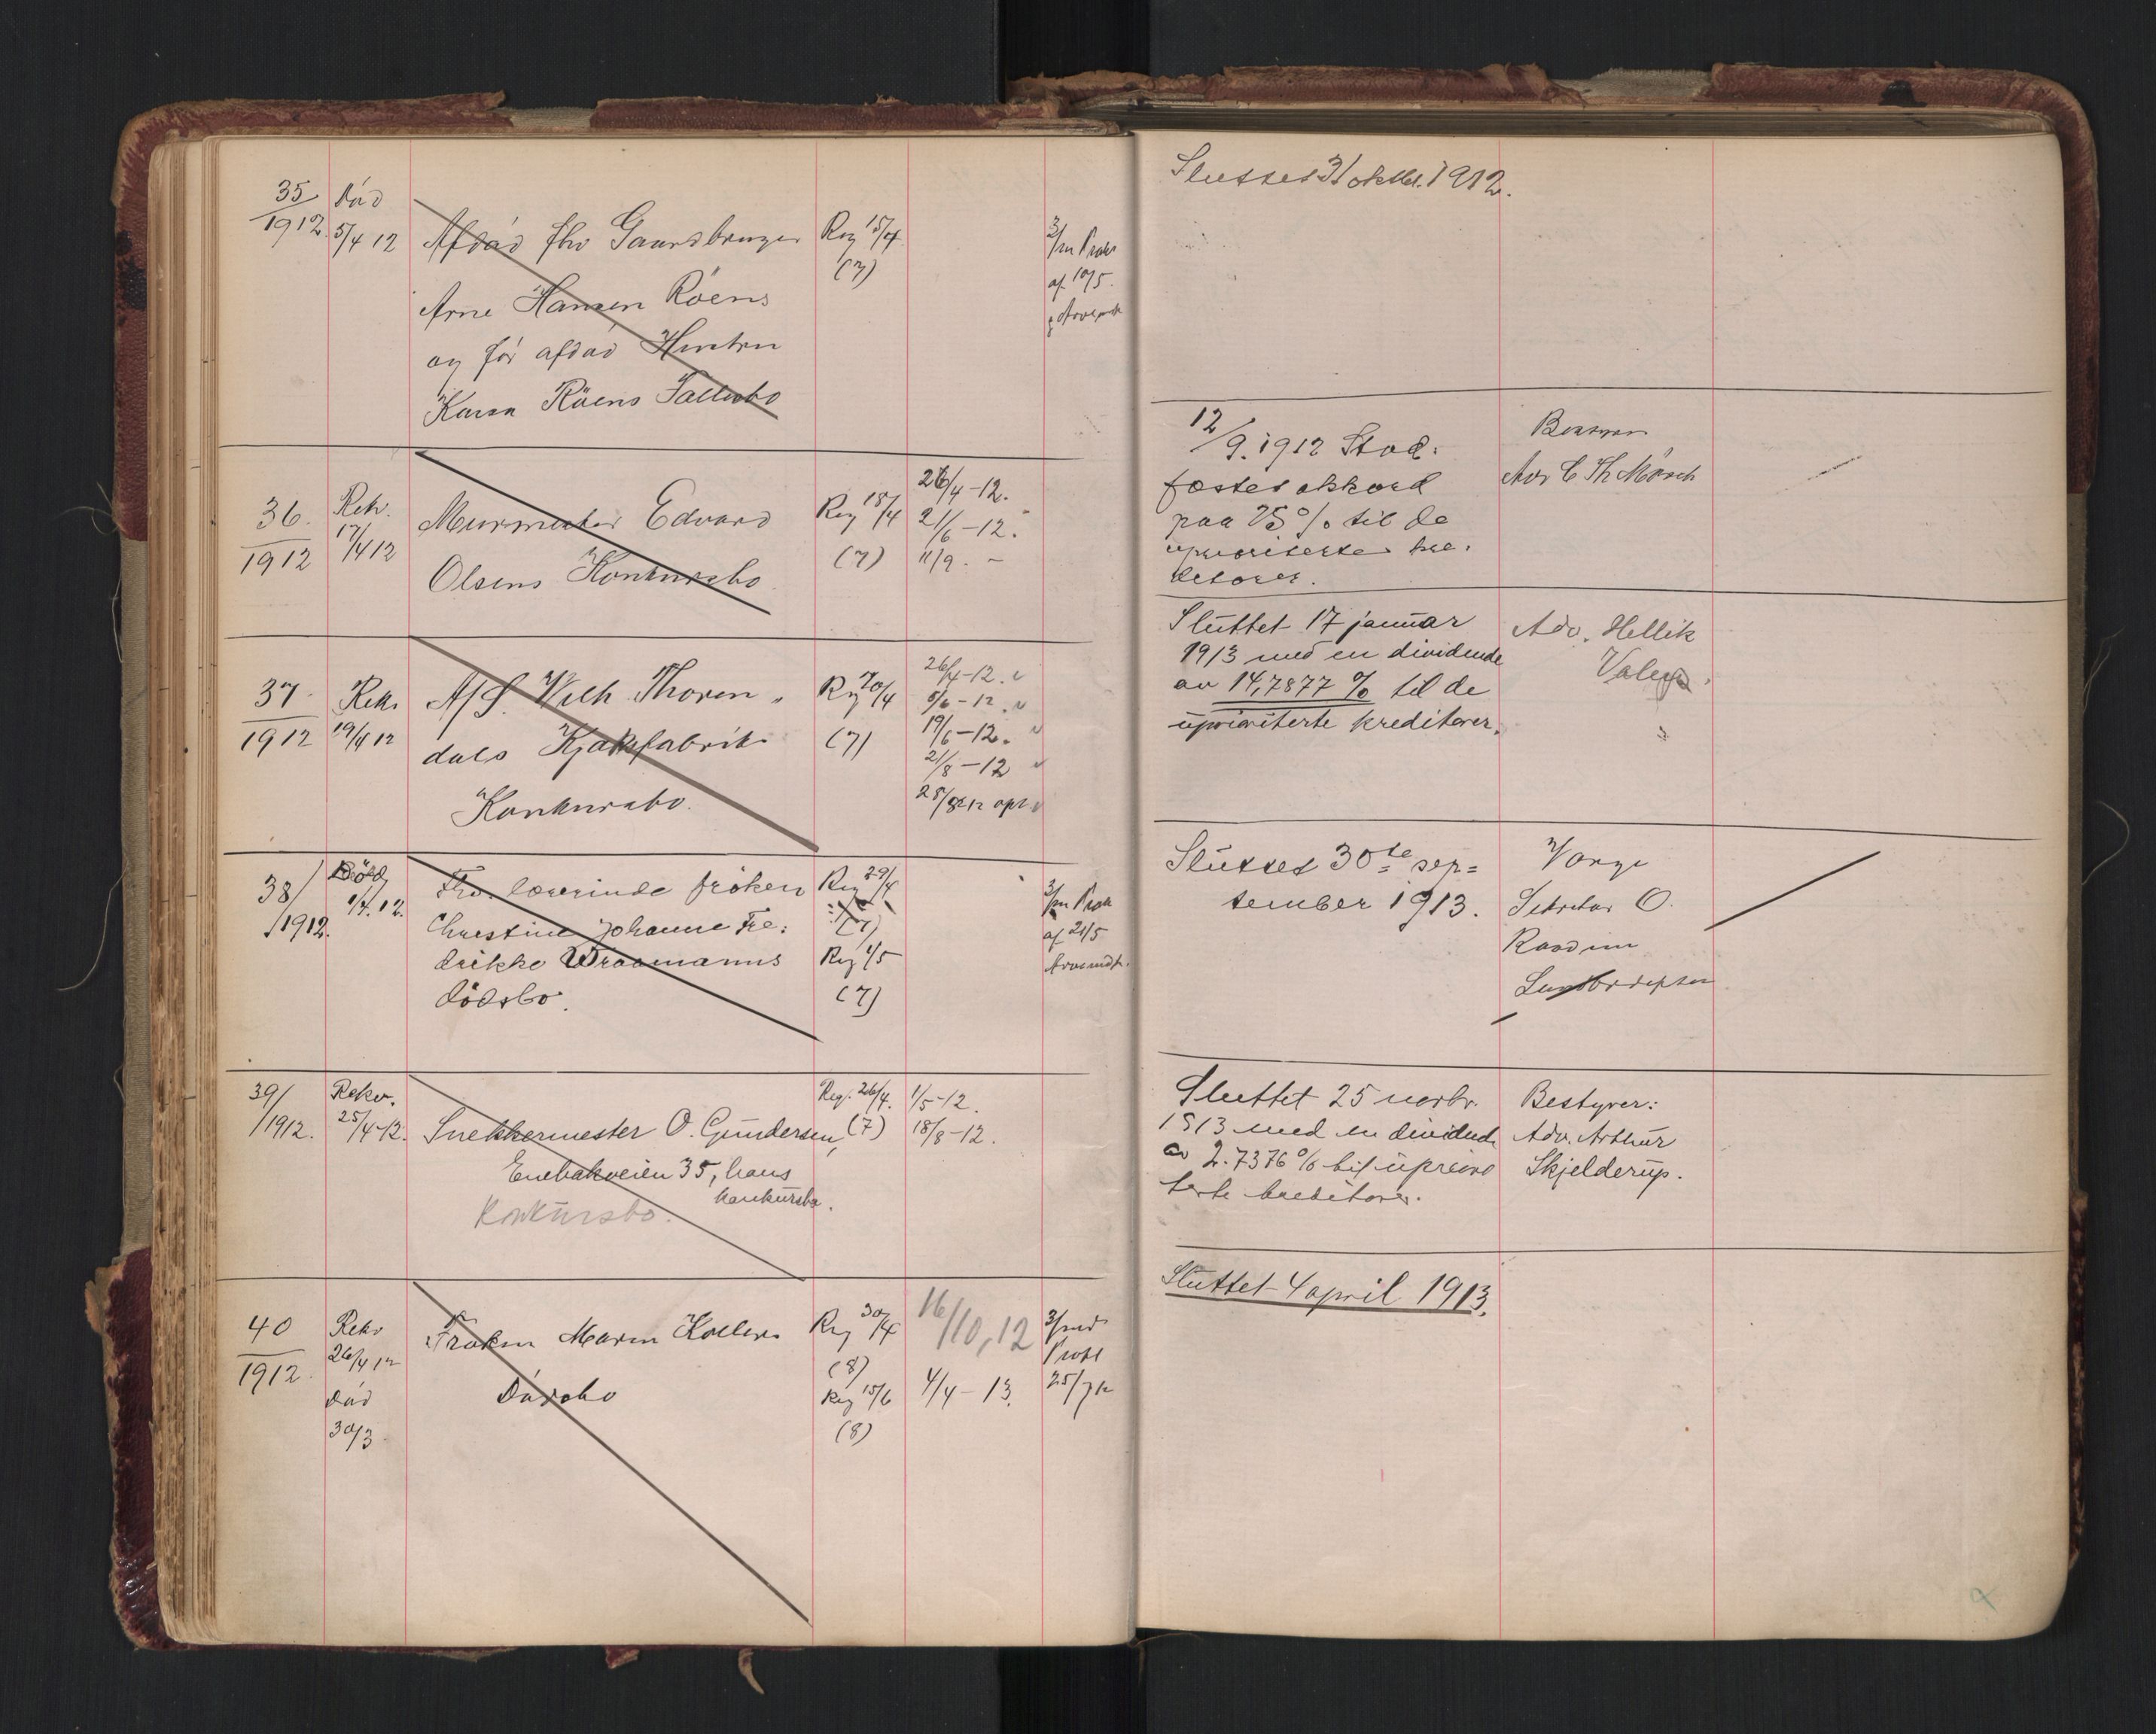 35
1912
Død
5/4 12
Afdød fhv Gaardbruger
Arne Hansen Röens
og før afdød Hustru
Karen Röens Fællesbo
Reg 15/4
(7)
3/m Prok
af 10/5
Sluttet 31 oktbr. 1912.
36
1912
Rekv.
17/4 12
Murmester Edvard
Olsens Konkursbo
Reg 18/4
(7)
26/4-12.
21/6-12.
11/9. -
12/9. 1912 Stad:
fæstet akkord
paa 25% til de
uprioriterte kre:
ditorer.
Adv C Th Mörch
37
1912
Rekv
19/4 12
A/S. Wilh. Thoren
dals Kjæksfabrik
Konkursbo.
Reg 20/4
(7)
26/4-12.
5/6-12.
19/6-12.
21/8-12
Sluttet 17 januar
1913 med en dividende
av 14,7877 % til de
uprioriterte kreditorer.
Adv. Hellik
38/
1912.
Död
1/4. 12.
Fhv. lærerinde fröken
Christine Johanne Fre:
drikke Wraamanns
dödsbo.
Reg 29/4
(7)
Reg 1/5
(7)
3/m Prok
af 21/5
Sluttet 30te sep=
tember 1913.
Verge
Sekretær O.
39/
1912.
Rekv.
25/4-12.
Snekkermester O. Gundersen,
Enebakveien 35, hans
konkursbo.
Konkursbo.
Reg. 26/4.
(7)
1/5-12.
18/8-12.
Sluttet 25 novbr.
1913 med en dividende
av 2.7376% til uprior
terte kreditorer.
Bestyrer:
Adv. Arthur
Skjelderup.
40
1912
Rekv
26/4 12
Død
30/3
Frøken Maren Kollers
Dødsbo
Reg 30/4
(8)
Reg 15/6
(8)
16/10, 12
4/4-13.
Sluttet 4 april 1913.